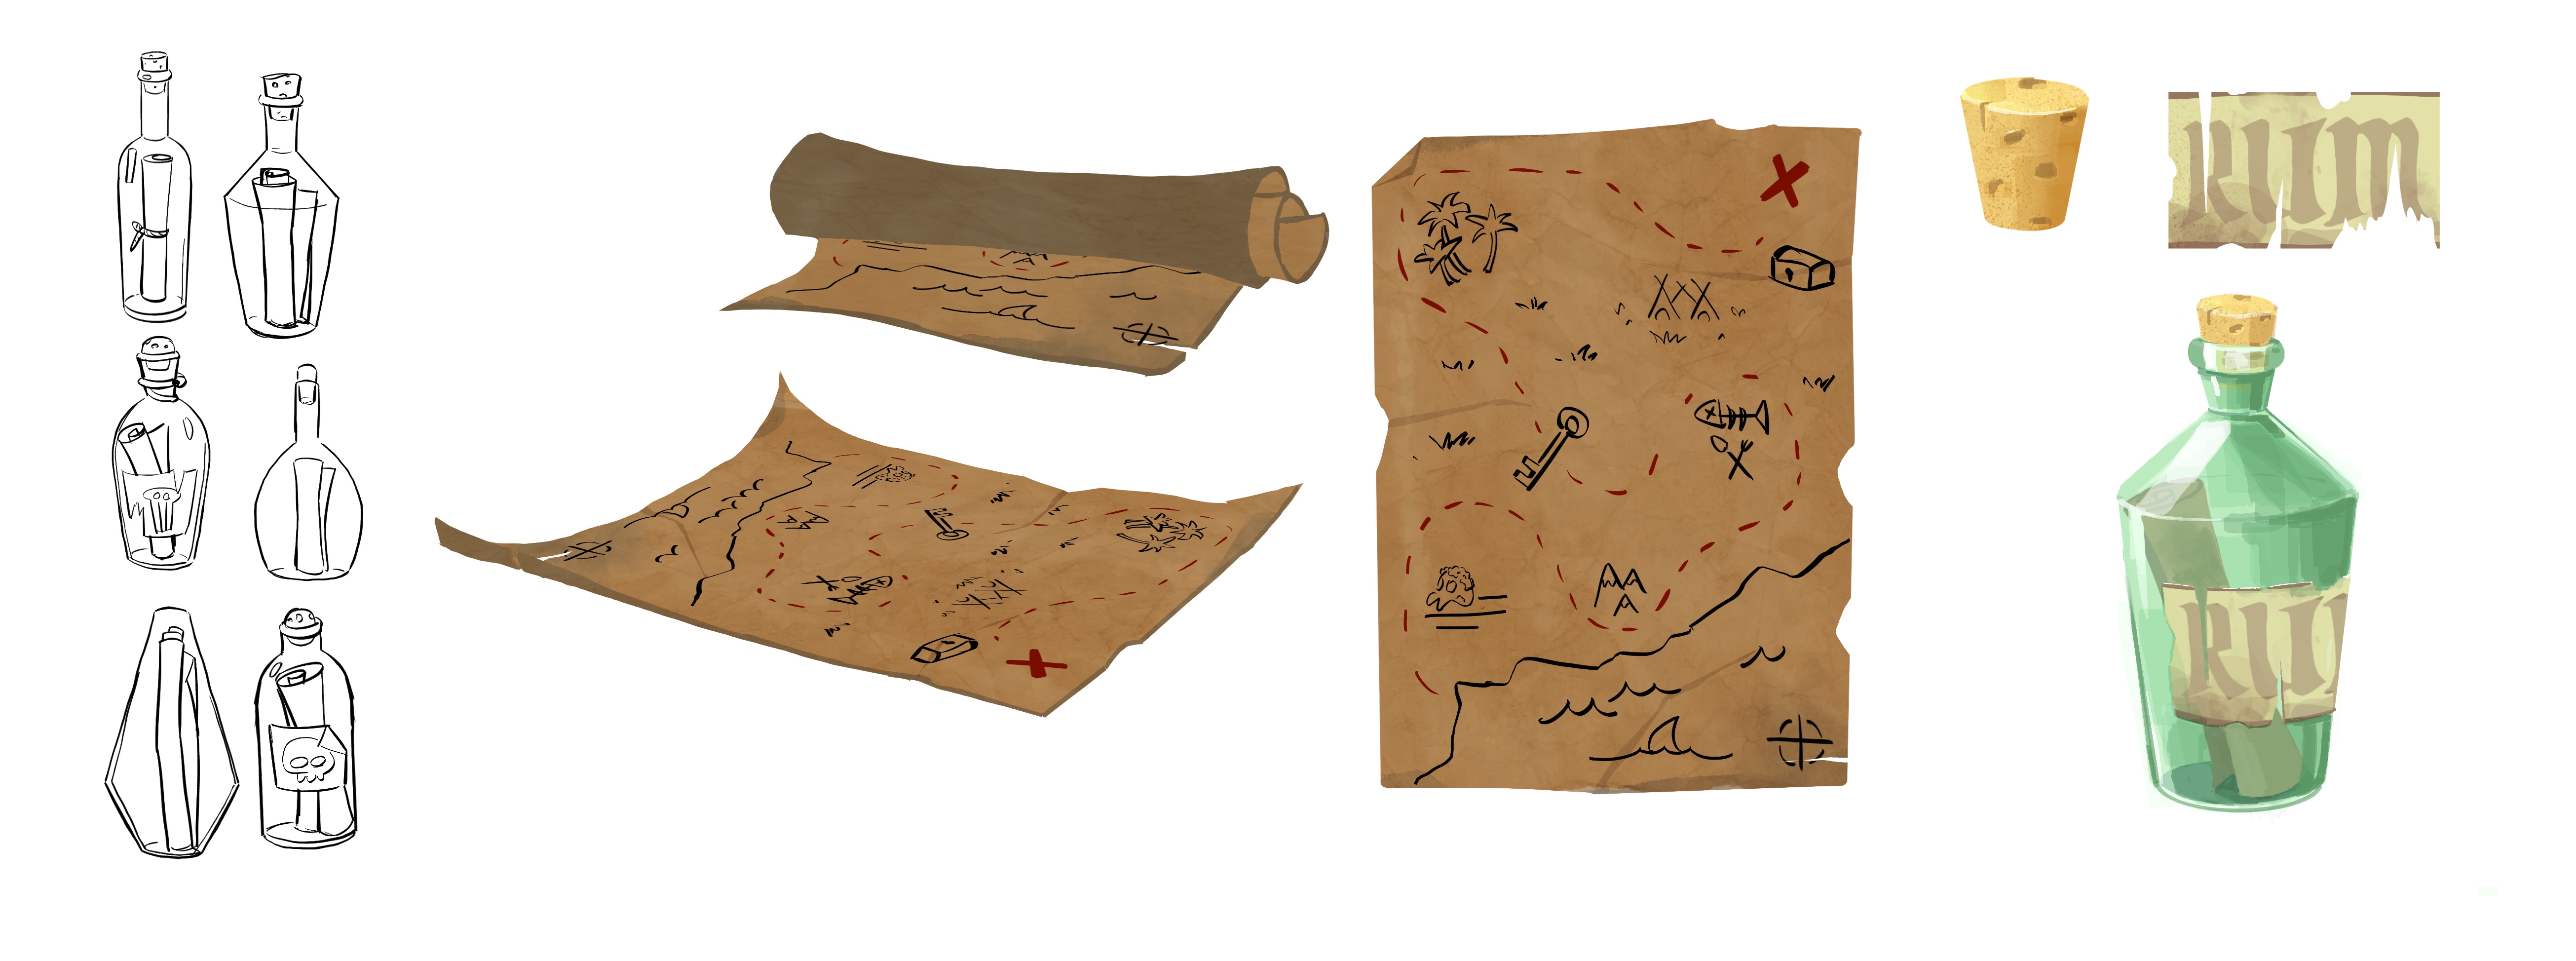 RUM
RUM